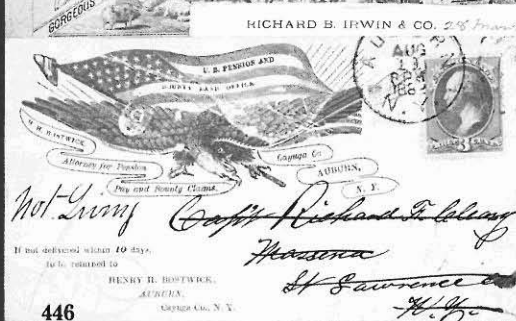 GORGEOUS
RICHARD B. IRWIN & CO.
U.S. PENSION AND
BOUNTY LAND OFFICE
H. H. BOSTWICK
Attorney for Pension
Pay and Bounty Claims,
Cayuga Co
AUBURN,
N. Y.
AUBURN
AUG
N.Y.
Not Living
Capt Richard T. Cleary
Massena
St Lawrence Co
N.Y.
If not delivered within 10 days,
to be returned to
HENRY H. BOSTWICK,
AUBURN,
Cayuga Co., N. Y.
446